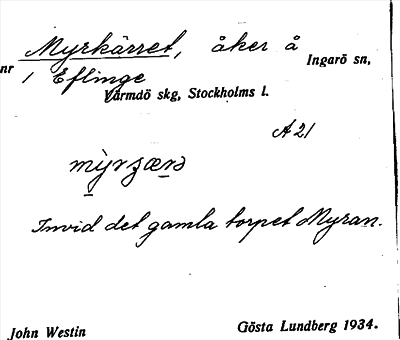 Myrkärret, åker å Ingarö sn,
nr 1 Eflinge
Värmdö skg, Stockholms l.
A 21
Invid det gamla torpet Myran.
John Westin Gösta Lundberg 1934.